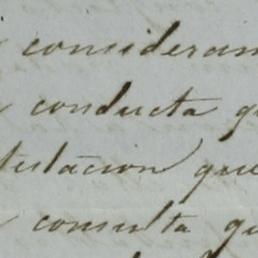 consideran
conducta q
testacion que
consulta qu